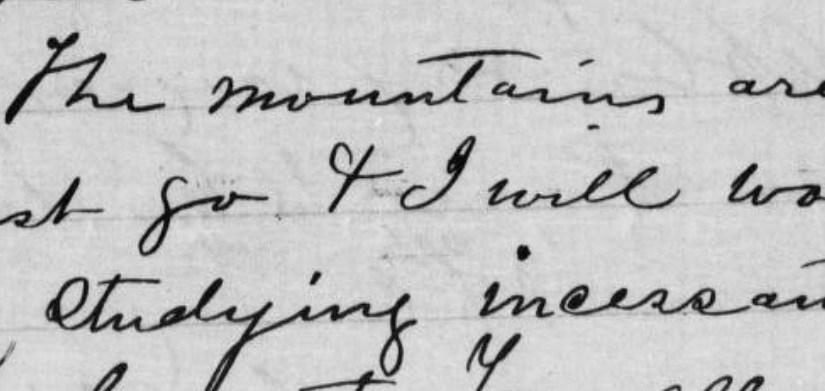 The mountains are
st go & I will wo
studying incessan